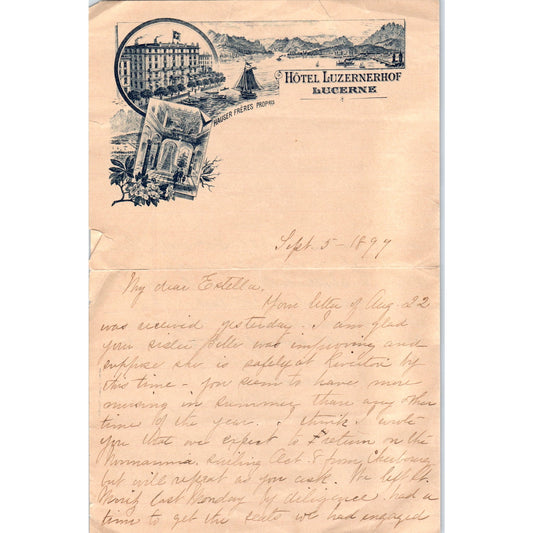 HÔTEL LUZERNERHOF
LUCERNE
HAUSER FRÈRES PROPRES
Sept. 5 - 1897
My dear Estella,
Your letter of Aug. 22
was received yesterday. I am glad
your sister Belle was improving and
suppose she is safely at Riverton by
this time - you seem to have more
nursing in summer than any other
time of the year. I think I wrote
you that we expect to return on the
Normannia, sailing Oct. 8 from Cherbourg
but will repeat as you ask. We left St.
Moritz last Monday by diligence. Had a
time to get the seats we had engaged